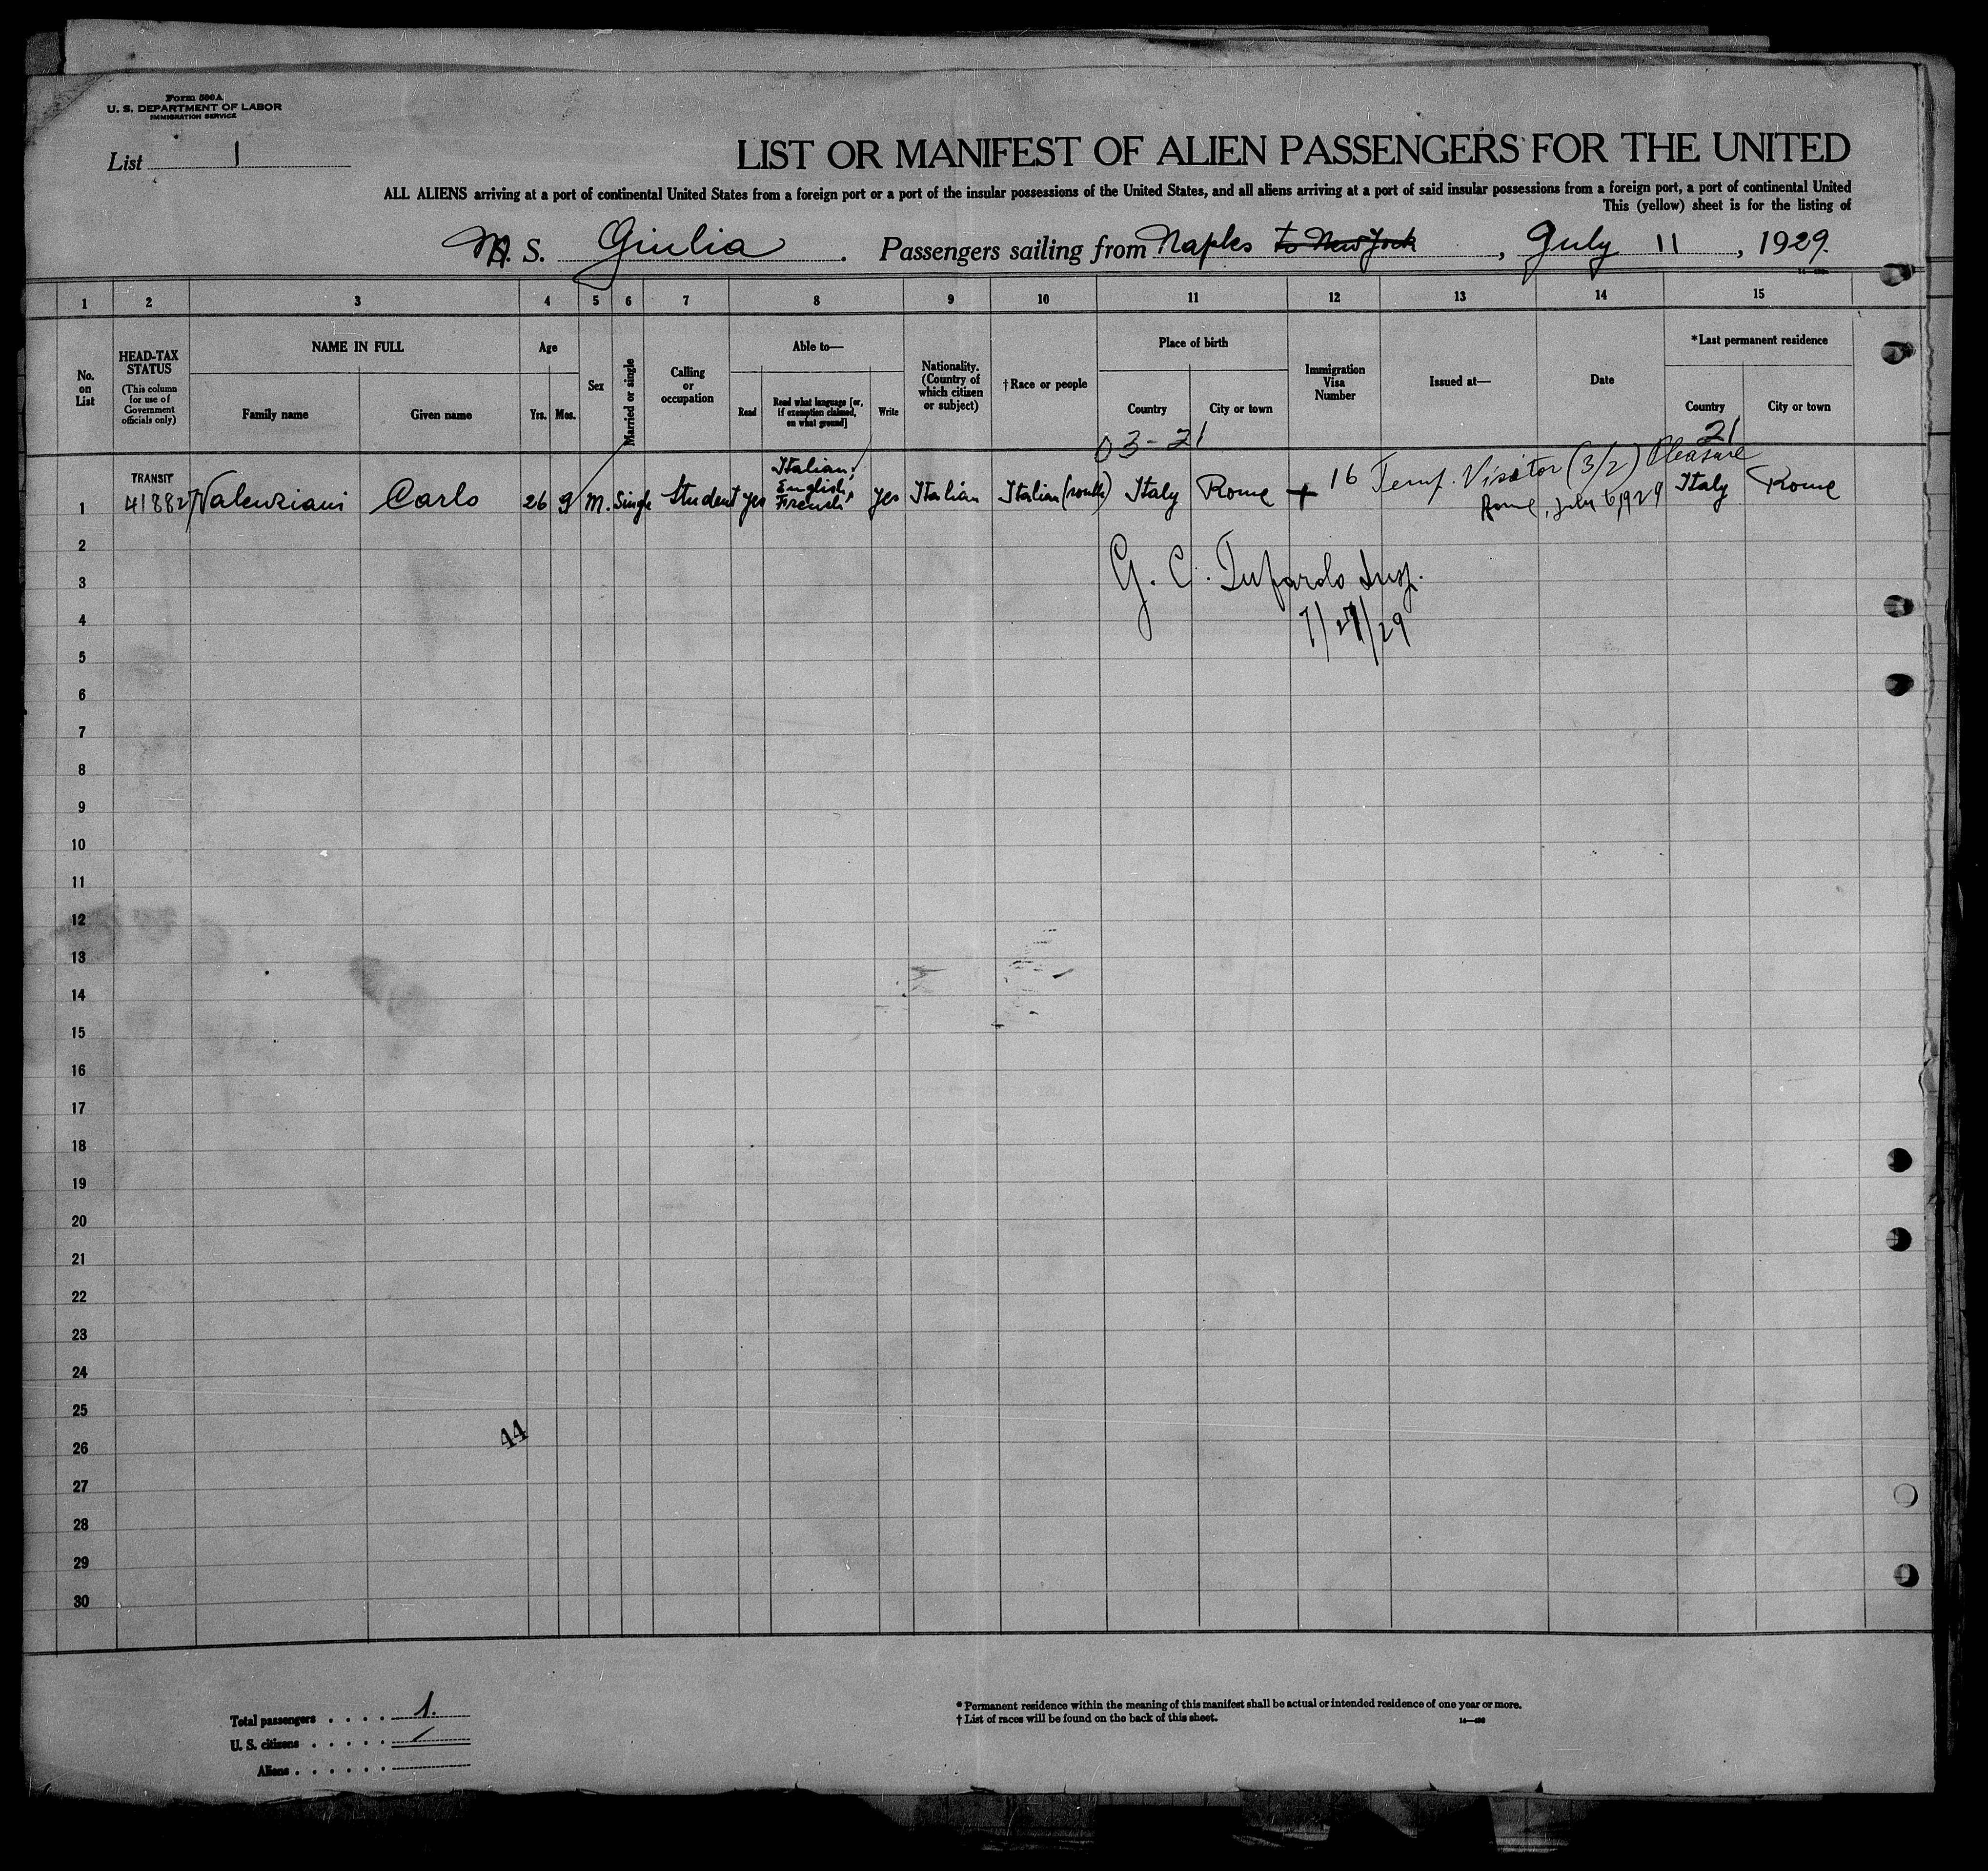 Form 500A
U. S. DEPARTMENT OF LABOR
IMMIGRATION SERVICE
List 1
LIST OR MANIFEST OF ALIEN PASSENGERS FOR THE UNITED
ALL ALIENS arriving at a port of continental United States from a foreign port or a port of the insular possessions of the United States, and all aliens arriving at a port of said insular possessions from a foreign port, a port of continental United
This (yellow) sheet is for the listing of
M. S. Giulia . Passengers sailing from Naples to New York , July 11 , 1929.
1 2 3 4 5 6 7 8 9 10 11 12 13 14 15
No. on List
HEAD-TAX STATUS
(This column for use of Government officials only)
NAME IN FULL
Family name
Given name
Age
Yrs.
Mos.
Sex
Married or single
Calling or occupation
Able to—
Read
Read what language [or, if exemption claimed, on what ground]
Write
Nationality. (Country of which citizen or subject)
†Race or people
Place of birth
Country
City or town
Immigration Visa Number
Issued at—
Date
*Last permanent residence
Country
City or town
03-21
21
TRANSIT
1 418827 Valenziani Carlo 26 9 M. Single Student yes Italian, English, French yes Italian Italian (south) Italy Rome + 16 Temp. Visitor (3/2) Pleasure Italy Rome
Rome, July 6, 1929
2
G. C. Insp.
3
7/27/29
4
5
6
7
8
9
10
11
12
13
14
15
16
17
18
19
20
21
22
23
24
25
44
26
27
28
29
30
Total passengers . . . . 1.
U. S. citizens . . . . .
Aliens . . . . . .
* Permanent residence within the meaning of this manifest shall be actual or intended residence of one year or more.
† List of races will be found on the back of this sheet.